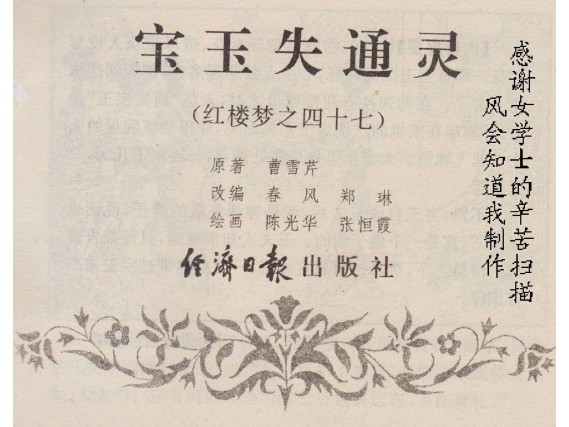 宝玉失通灵
(红楼梦之四十七)
原著 曹雪芹
改编 春风 郑琳
绘画 陈光华 张恒霞
经济日报出版社
感谢女学士的辛苦扫描
风会知道我制作